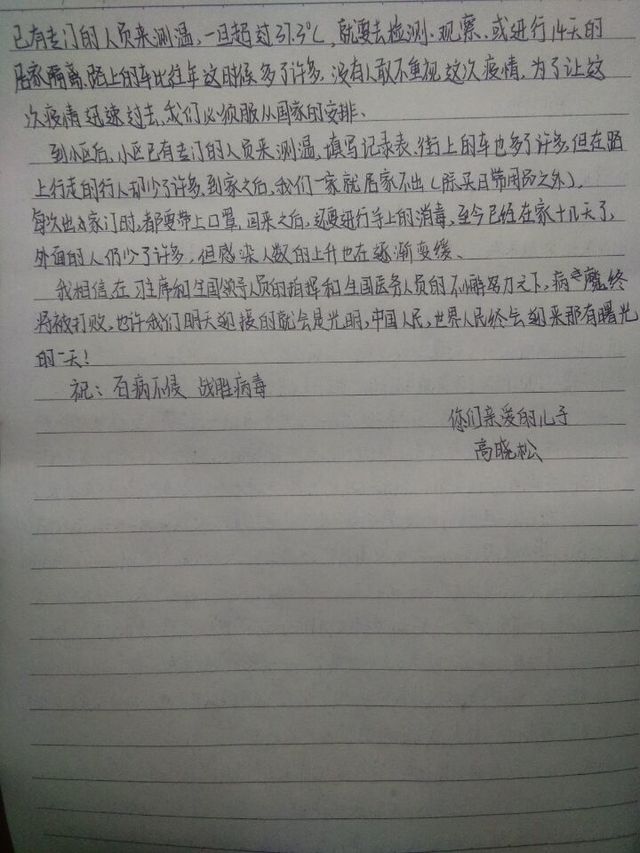 已有专门的人员来测温,一旦超过37.3℃,就要去检测、观察、或进行14天的
居家隔离,路上的车比往年这时候多了许多,没有人敢不重视这次疫情,为了让这
次疫情迅速过去,我们必须服从国家的安排、
到小区后,小区已有专门的人员来测温、填写记录表,街上的车也多了许多,但在路
上行走的行人却少了许多,到家之后,我们一家就居家不出(除买日常用品之外),
每次出家门时,都要带上口罩,回来之后,还要进行手上的消毒,至今已经在家十几天了,
外面的人仍少了许多,但感染人数的上升也在逐渐变缓、
我相信在习主席和全国领导人员的指挥和全国医务人员的不懈努力之下,病魔终
将被打败,也许我们明天迎接的就会是光明,中国人民,世界人民终会迎来那有曙光
的一天!
祝:百病不侵 战胜病毒
你们亲爱的儿子
高晓松